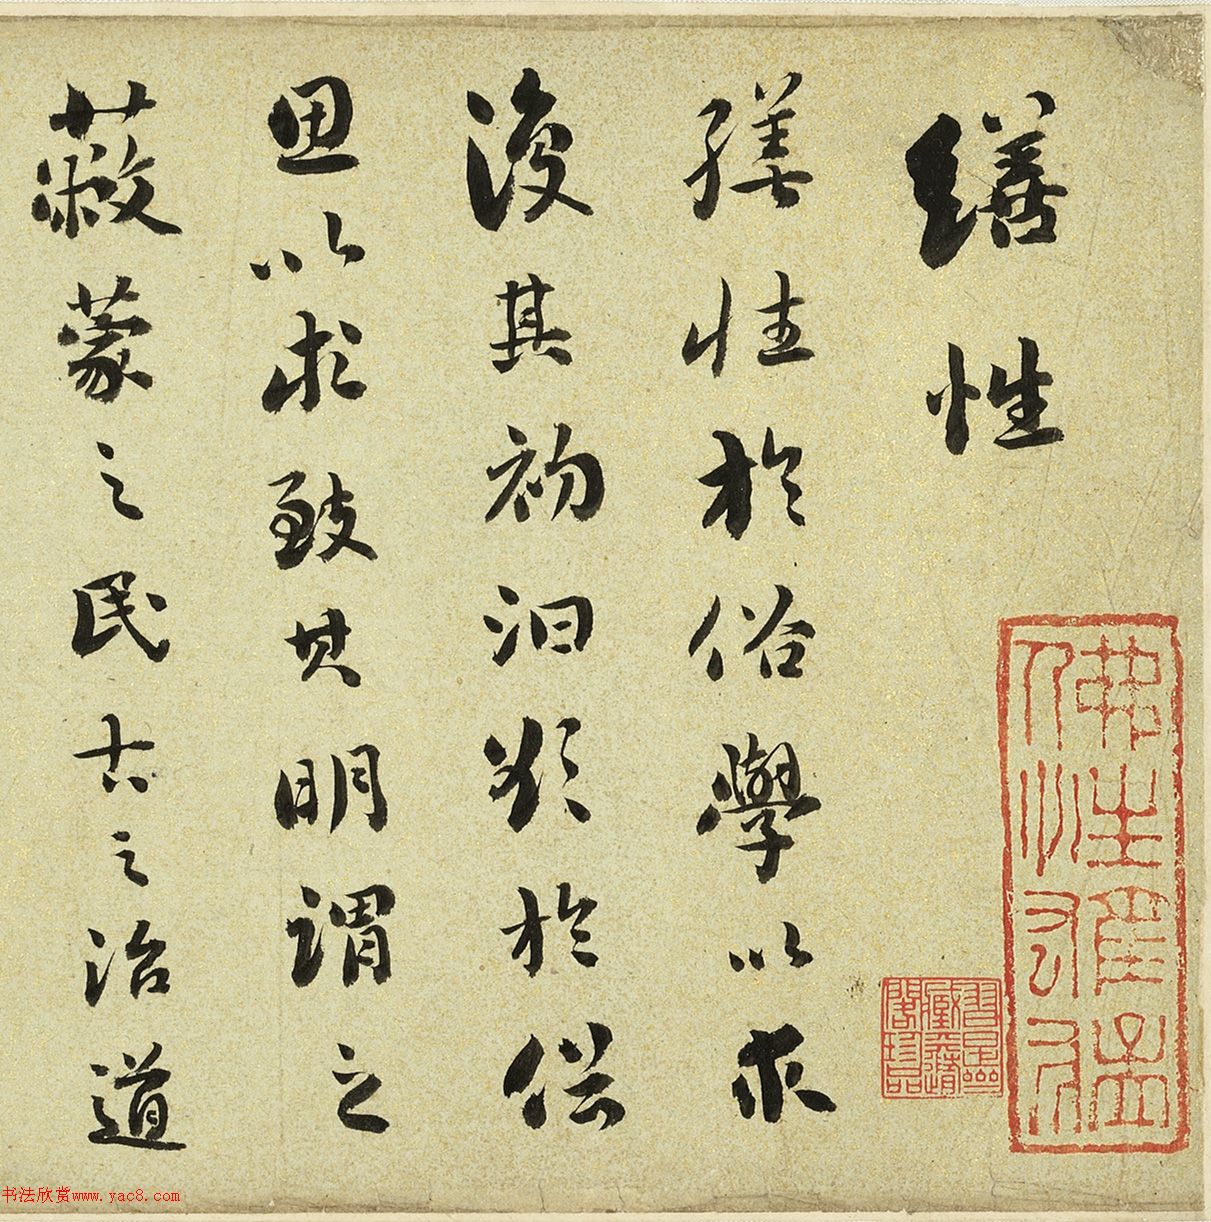 繕性
繕性於俗學以求
復其初汩欲於俗
思以求致其明謂之
蔽蒙之民古之治道
书法欣赏www.yac8.com